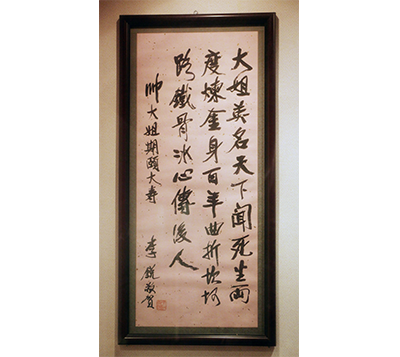 大姐英名天下闻死生两
度炼金身百年曲折坎坷
路鐵骨冰心傳後人
帅大姐期頤大寿
李銳敬賀